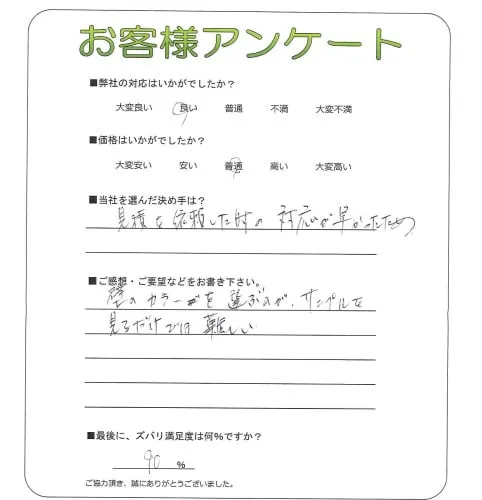 お客様アンケート
■弊社の対応はいかがでしたか？
大変良い 良い 普通 不満 大変不満
■価格はいかがでしたか？
大変安い 安い 普通 高い 大変高い
■当社を選んだ決め手は？
見積を依頼した時の対応が早かったため
■ご感想・ご要望などをお書き下さい。
壁のカラーを選ぶのが、サンプルを
見るだけでは難しい
■最後に、ズバリ満足度は何%ですか？
90 %
ご協力頂き、誠にありがとうございました。